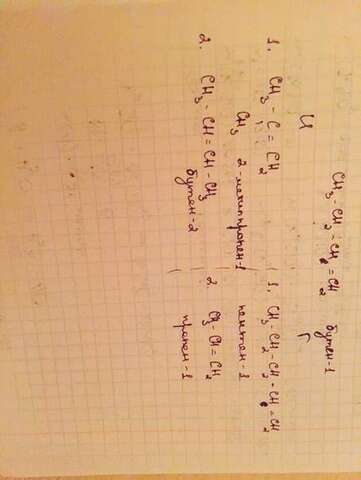 CH₃-CH₂-CH=CH₂ бутен-1
И Г
1. CH₃-C=CH₂
CH₃
2-метилпропен-1
2. CH₃-CH=CH-CH₃
бутен-2
1. CH₃-CH₂-CH₂-CH=CH₂
пентен-1
2. CH₃-CH=CH₂
пропен-1